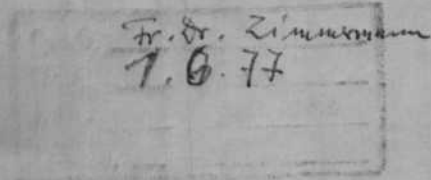 Fr. Dr. Zimmermann
1.6.77